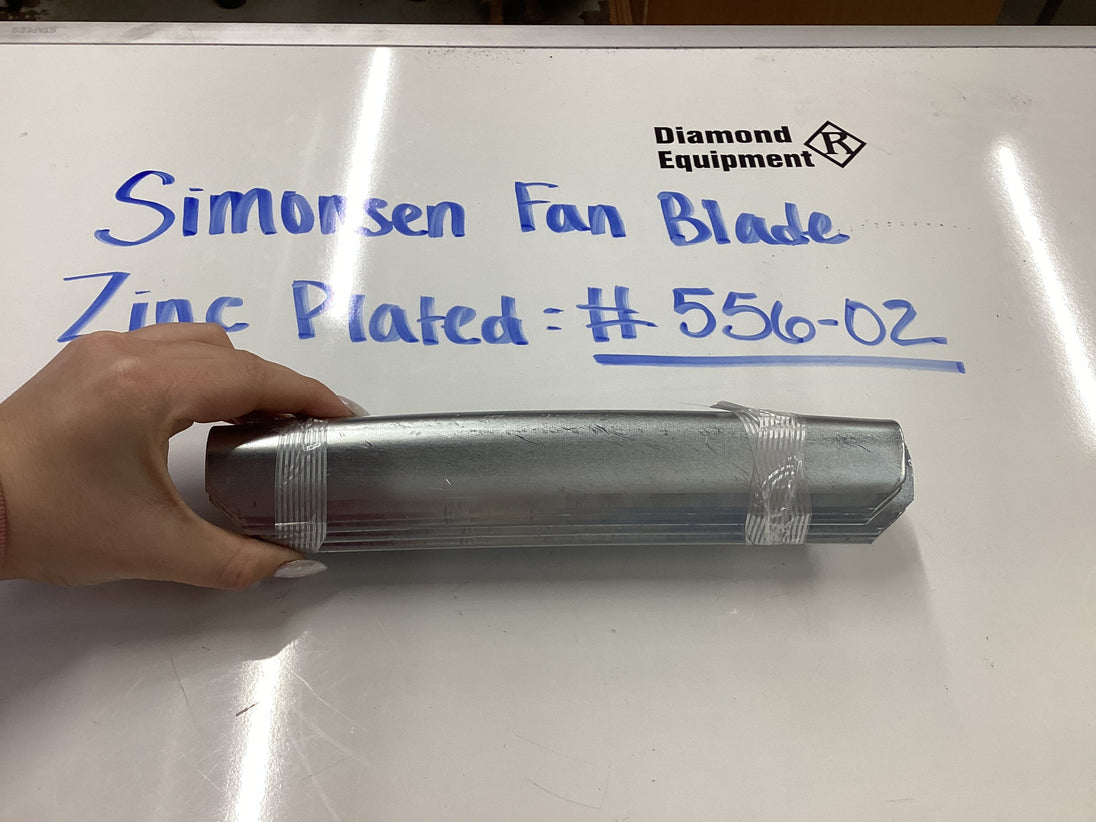 STAPLES
Diamond
Equipment R
Simonsen Fan Blade
Zinc Plated = # 556-02